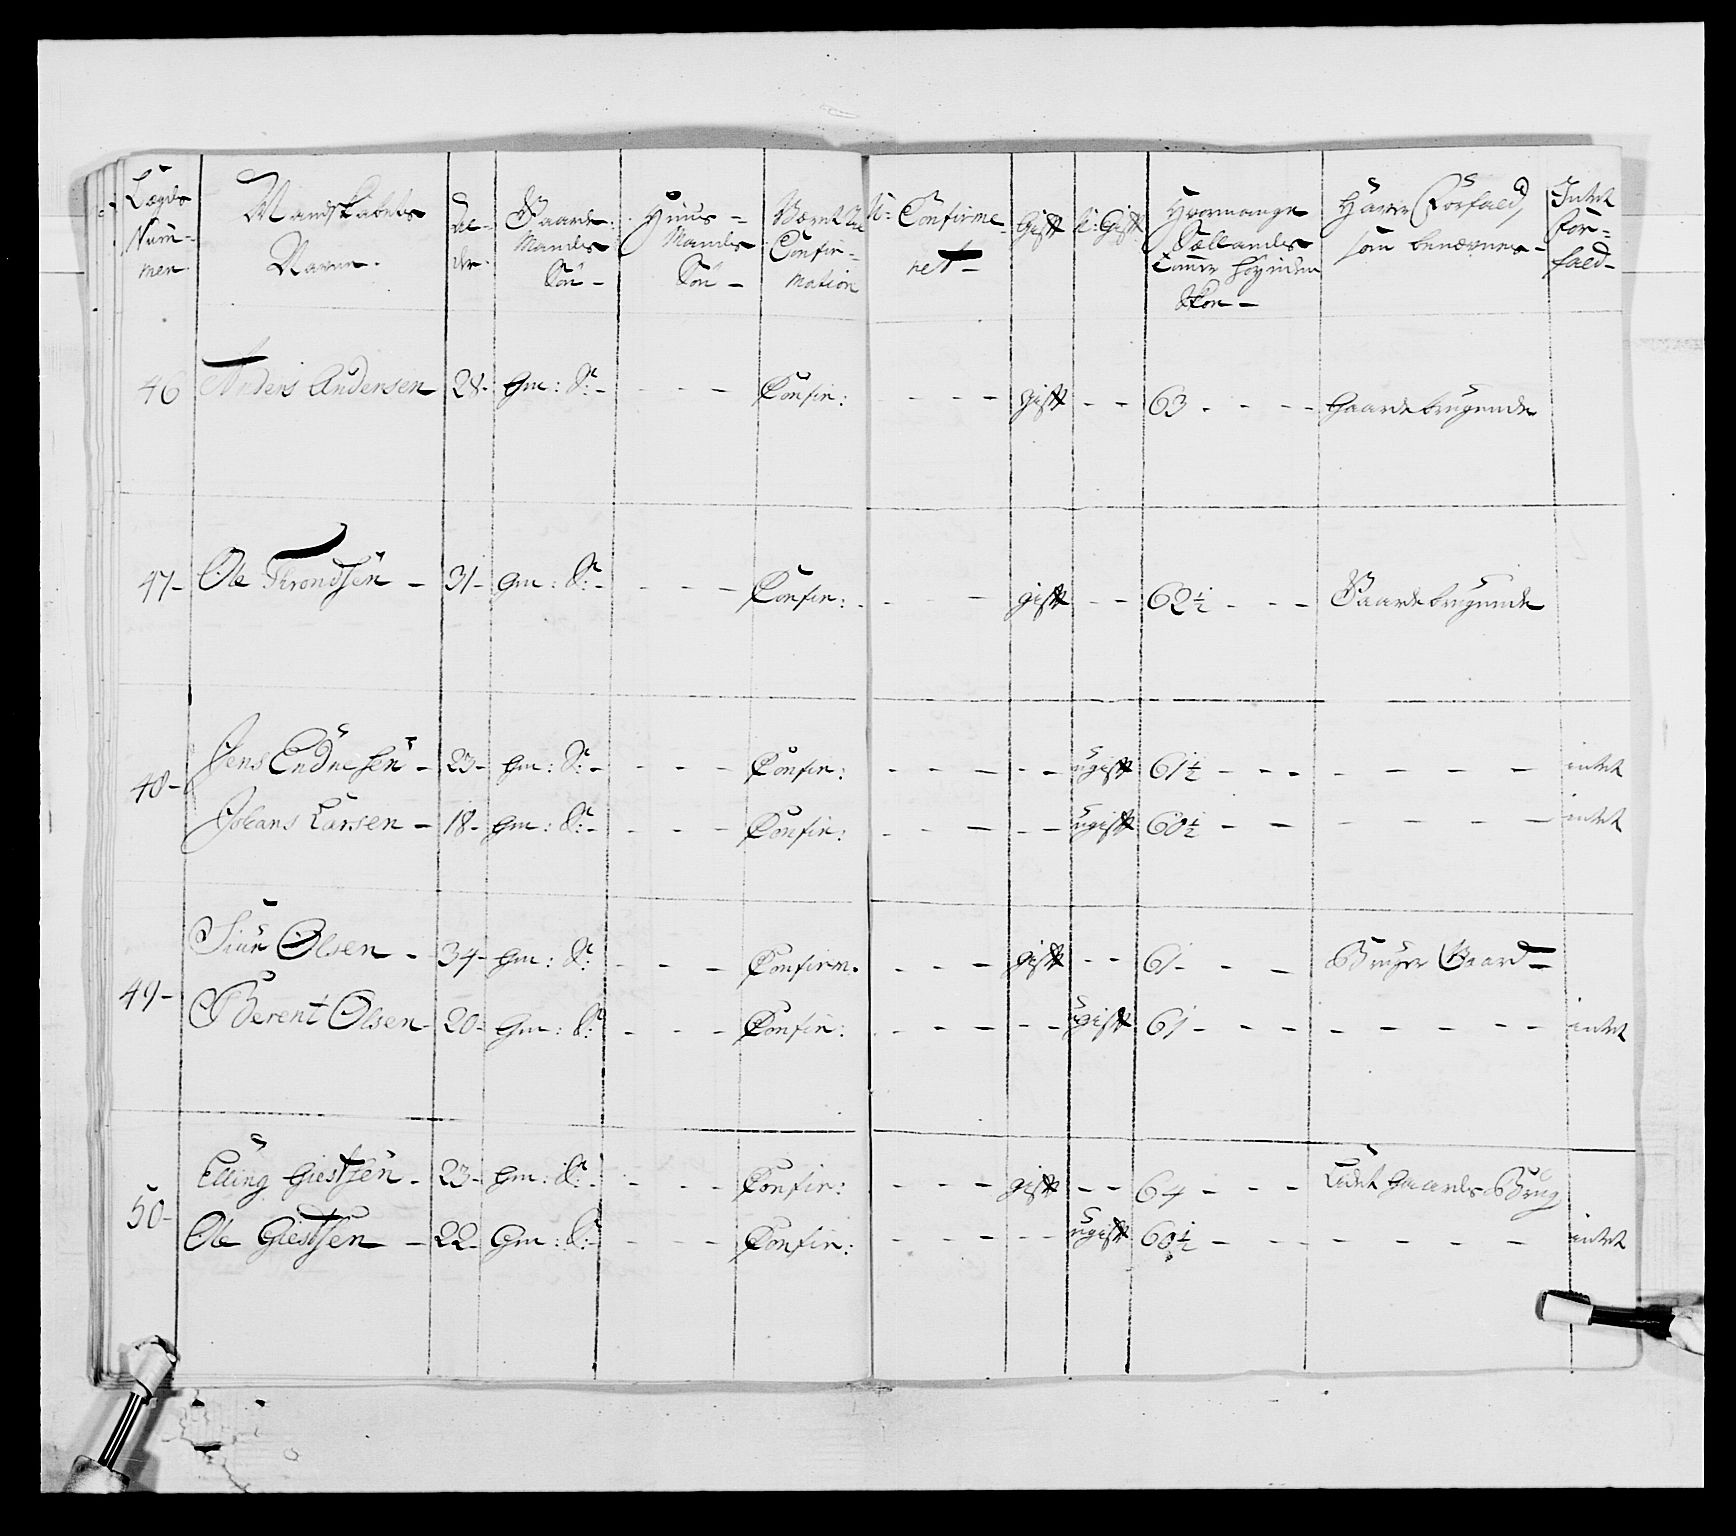 Lægds Num- mer
Mandskabets Navne.
Al- der.
Gaard- Mands Sön -
Huus- Mands Sön -
Været til Confir- mation
U- Confirme- ret -
Gift
U: Gift
Hvormange Sællandske Tomer höy uden Skoe -
Haver Forfald, som benævnes -
Intet For- fald -
46 Anders Andersen 28- Gm: S: - - - - Confir: - - - - gift - - 63 - - - - Gaardebrugende
47- Ole Throndsen - 31- gm: S: - - - - Confir: - - - gift - - 62½ - - - Gaardebrugende
48- Jens Endresen - 23- gm: S: - - - - Confir: - - - - - - ugift 61½ - - - - - - - - intet
Johans Larsen - 18- gm: S: - - - - Confir: - - - - - ugift 60½ - - - - - - - intet
49- Siur Olsen - 34- gm: S: - - - Confirm. - - - gift - - 61 - - - Bruger Gaard -
Berent Olsen - 20- Gm: S: - - - Confir: - - - - - ugift 61 - - - - - - - - intet
50- Elling Giestsen - 23- gm: S: - - - - Confir: - - - gift - - 64 - - - Lidet Gaards Brug
Ole Giestsen - 22- Gm: S: - - - - Confir: - - - - - ugift 60½ - - - - - - - intet